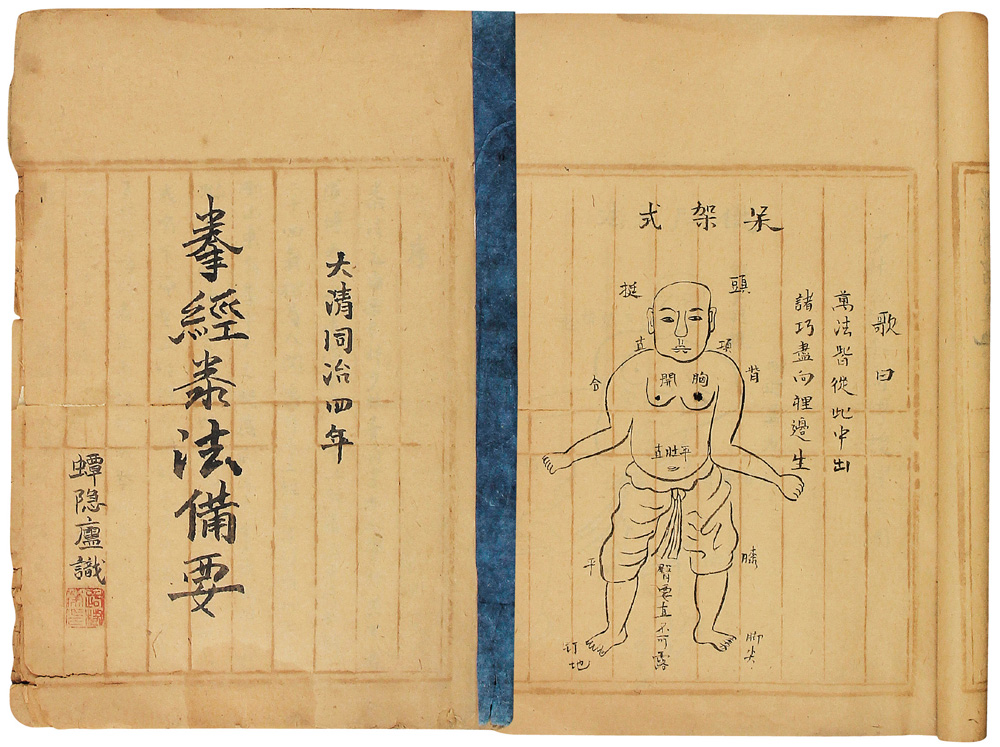 大清同治四年
拳經拳法備要
蟫隐廬識
呆架式
歌曰
萬法皆從此中出
諸巧盡向裡邊生
頭
挺
項
直
背
合
胸
開
平肚直
膝
平
臀要直不可露
脚尖
釘地